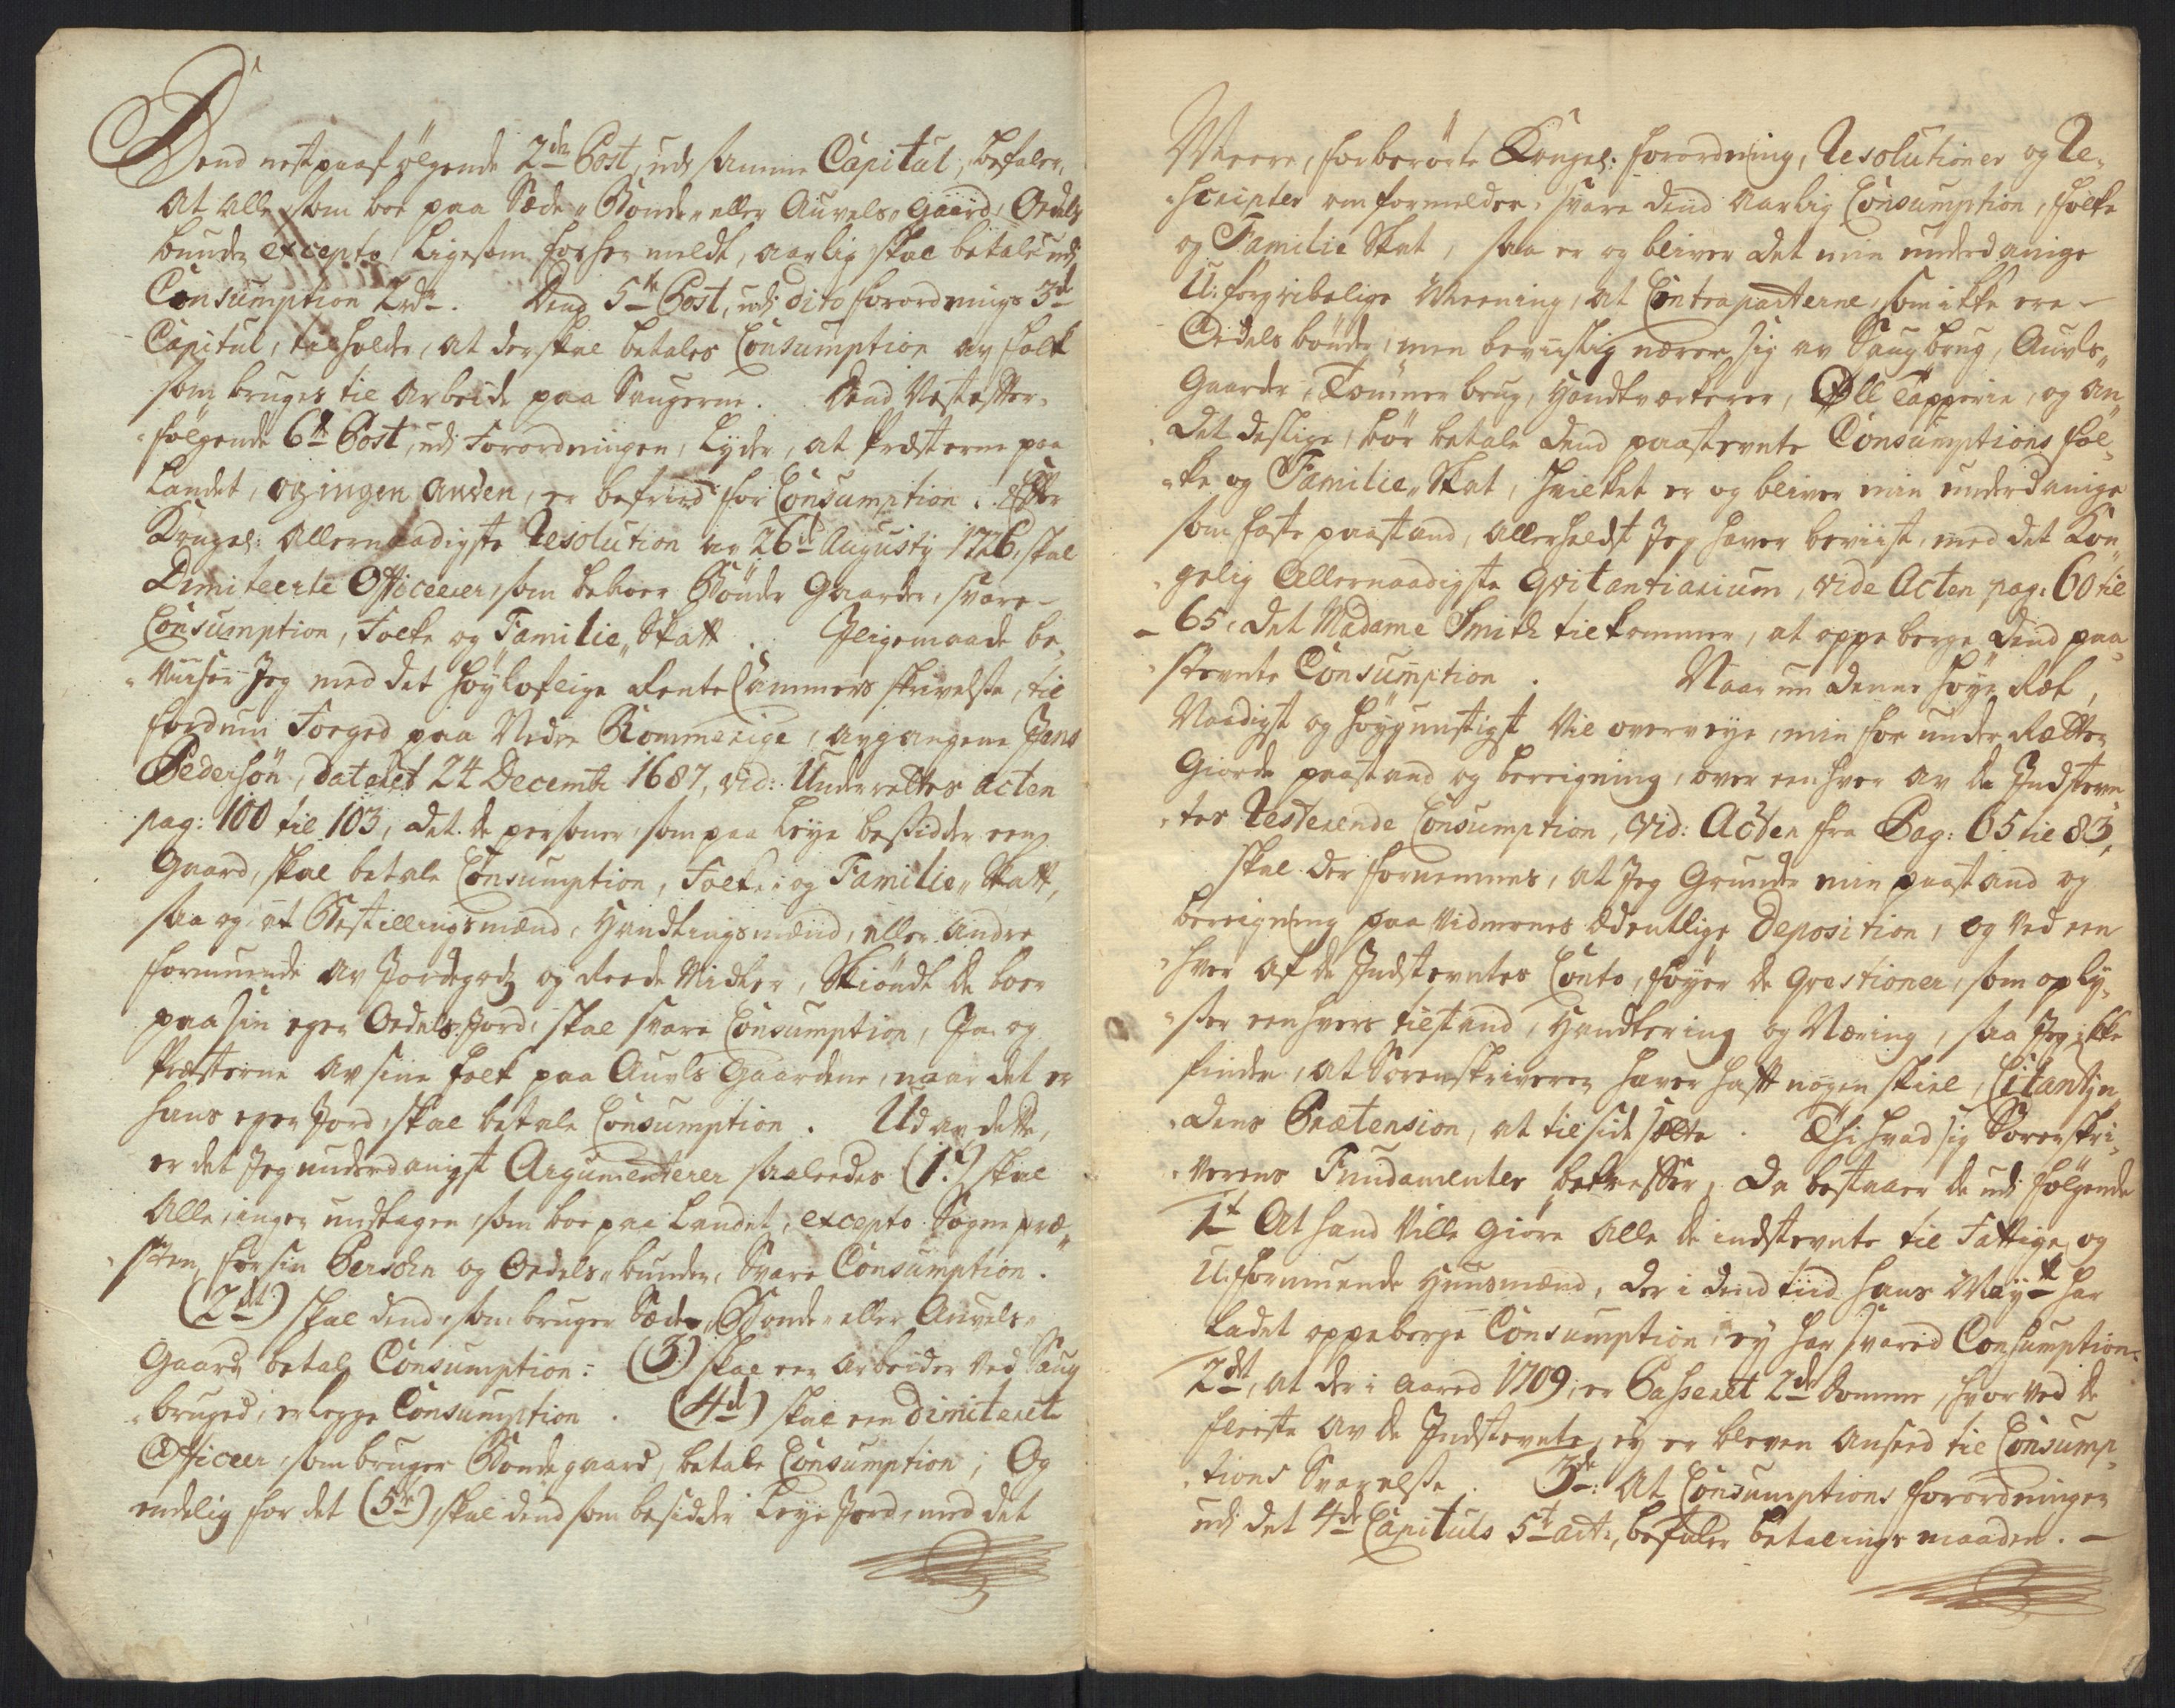 Dend nestpaafølgende 2den Post, udi samme Capitul, befaler,
At alle som boe paa Sæde- Bonde- eller Auvels- Gaard, Oedels
bunder excepto, Ligesom forhen meldt, aarlig skal betale udi
Consumption 2 rdr. Dend 5te Post, udi dito forordnings 3die
Capitul, tilholder, at der skal betales Consumption av folk
som bruges til Arbeide paa Saugerne. Dend Nestefter-
følgende 6te Post, udi Forordningen, Lyder, at Præsterne paa
Landet, og ingen anden, er befriid for Consumption. Efter
Kongel: Allernaadigste Resolution av 26de Augusty 1726, skal
Dimiteerte Officerer, som beboer Bønder Gaarder, svare
Consumption, Folke og Familie Skatt. Iligemaade be-
viiser Jeg med det høylovlige Rente Cammers skrivelse, til
fordum Foeged paa Nedre Rommerige, avgangene Jens
Pedersøn, dateret 24 Decembr 1687, vid: Underrettes Acten
pag: 100 til 103, at de personer, som paa Leye besidder een
Gaard, skal betale Consumption, Folke- og Familie Skatt,
saa og at Bestillingsmænd, Handlingsmænd, eller andre
formuende av Jordegodz og Reede Midler, Skiøndt de boer
paa sin egen Oedels Jord, skal svare Consumption, Ja og
Præsterne av sine folk paa Auvls Gaardene, naar det er
hans egen Jord, skal betale Consumption. Ud av dette,
er det Jeg underdanigst Argumenterer saaleedes (1:) skal
Alle, ingen undtagen, som boe paa Landet, excepto Sogne præ-
sten, for sin Persohn og Oedels bunder, Svare Consumption.
(2det) skal dend, som bruger Sæde- Bonde- eller Auvels-
Gaard, betale Consumption: (3) skal een Arbeider ved Saug
bruged, erlegge Consumption. (4de) skal een dimiteret
Officeer, som bruger Bondegaard, betale Consumption; Og
endelig for det (5te), skal dend som besidder Leye Jord, med det
Meere, forberørte Kongel: Forordning, Resolutioner og Re-
scripter om formelder, svare dend aarlig Consumption, Folke
og Familie Skat, saa er og bliver det min underdanige
U:forgribelige Meening, at Contraparterne, som ikke ere
Oedels bønder, men beviislig nærer sig av Saugbrug, Auvls
Gaarder, Tømmer brug, Handtværkerer, Øll Tapperie, og an-
det deslige, bør betale dend paastevnte Consumptions Fol-
ke og Familie Skat, hvilket er og bliver min underdanige
som faste paastand, allerhelst Jeg haver beviist, med det Kon-
gelig Allernaadigste Qvitantiarium, vide Acten pag: 60 til
65, at Madame Smith tilkommer, at oppeberge dend paa-
stevnte Consumption. Naar nu denne høye Ræt,
Naadigst og høygunstigst vil overveye, min for under Rætten
Giorde paastand og bereigning, over een hver av de Indstevn-
tes Resterende Consumption, vid: Acten fra Pag: 65 til 83,
skal der fornemmes, at Jeg Grunder min paastand og
bereigning paa Vidnernes Edentlige Deposition, og ved een
hver af de Indstevntes Conto, føyer de Qvestioner, som oply-
ser eenhvers tilstand, Handtering og Næring, saa Jeg ikke
finder, at Sorenskriveren haver hafft nogen skiel, Citantin-
dens Prætension, at tilside sætte. Thi hvad sig Sorenskri-
verens Fundamenter betreffer, da bestaaer de udi følgende
1t At hand ville giøre alle de indstevnte til Fattige og
U:formuende Huusmænd, der i dend tiid hans Mayst har
ladet oppeberge Consumption, ey har svared Consumption.
2det, at der i Aared 1709, er Passeret 2de Domme, hvorved de
fleeste av de Indstevnte, ey er bleven anseed til Consump-
tions Svarelse. 3de: At Consumptions Forordningen
udi det 4de Capituls 5te art:, befaler betalings maaden.